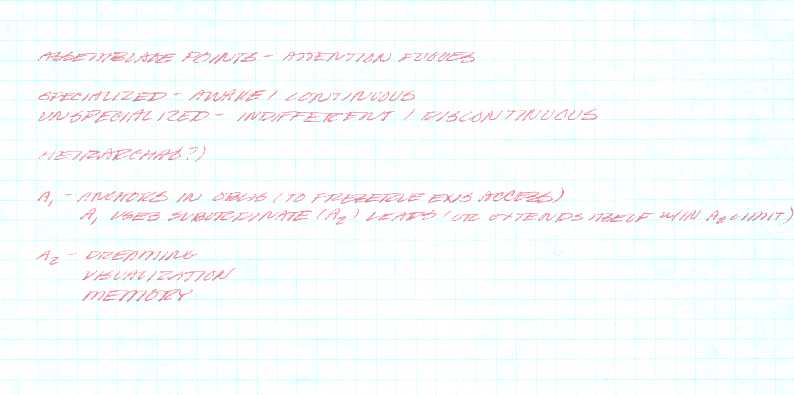 ASSEMBLAGE POINTS - ATTENTION FUGUES
SPECIALIZED - AWAKE / CONTINUOUS
UNSPECIALIZED - INDIFFERENT / DISCONTINUOUS
A₁ - ANCHORS IN (TO ACCESS)
A₁ USES SUBORDINATE (A₂) LEADS (OR EXTENDS ITSELF W/IN A₂ LIMIT)
A₂ - DREAMING
VISUALIZATION
MEMORY